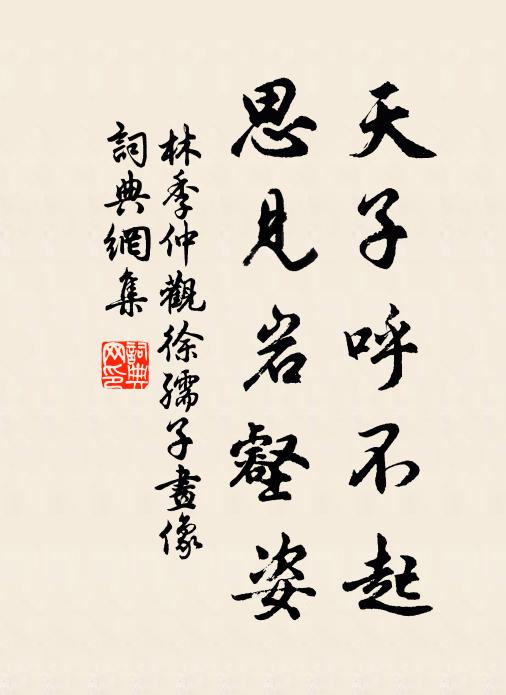 天子呼不起
思見岩壑姿
林季仲觀徐孺子畫像
詞典網集
詞典網印